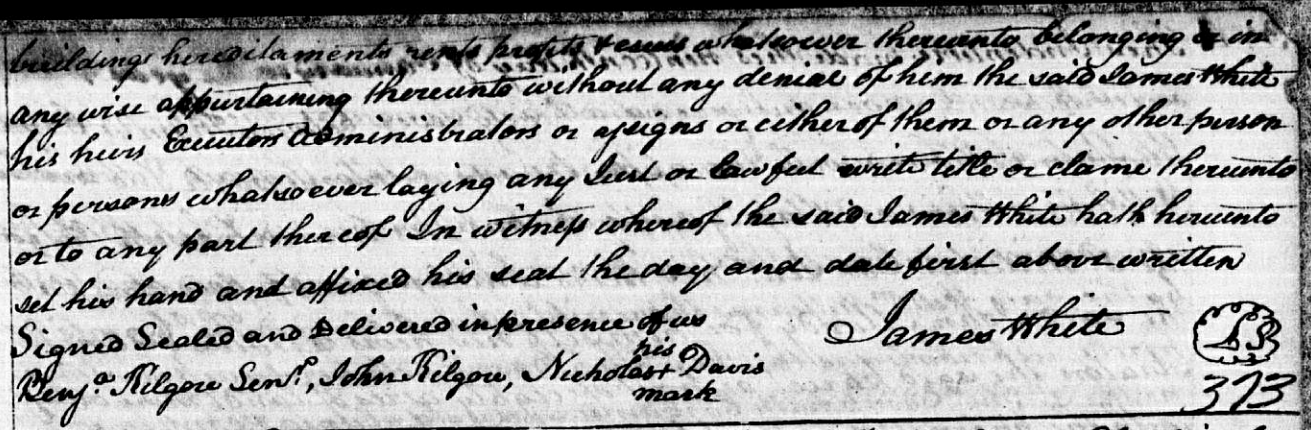 buildings hereditaments rents profits & esues whatsoever thereunto belonging or in
any wise appurtaining thereunto without any denial of hem the said James White
his heirs Executors administrators or assigns or either of them or any other person
or persons whatsoever laying any Just or lawful write title or clame thereunto
or to any part thereof In witness whereof the said James White hath hereunto
set his hand and affixed his seal the day and date first above written
Signed Sealed and Delivered in presence of us
James White LS
his
Benja. Kilgore Senr., John Kilgore, Nicholas + Davis
mark
373